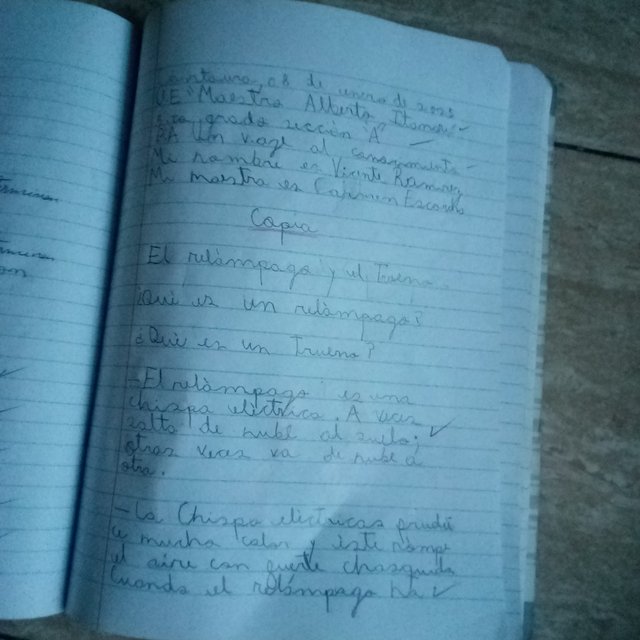 de enero de
U.E. Maestro Alberto
grado sección "A"
Un viaje al
Mi nombre es Vicente Ramirez
Mi maestra es
Copia
El relámpago y el Trueno
Qué es un relámpago?
¿Qué es un Trueno?
-El relámpago: es una
chispa eléctrica. A veces
salta de nube al suelo.
otras veces va de nube a
otra.
-La Chispa electricas produ
e mucho calor y este rompe
el aire con fuerte
Cuando el relámpago ha